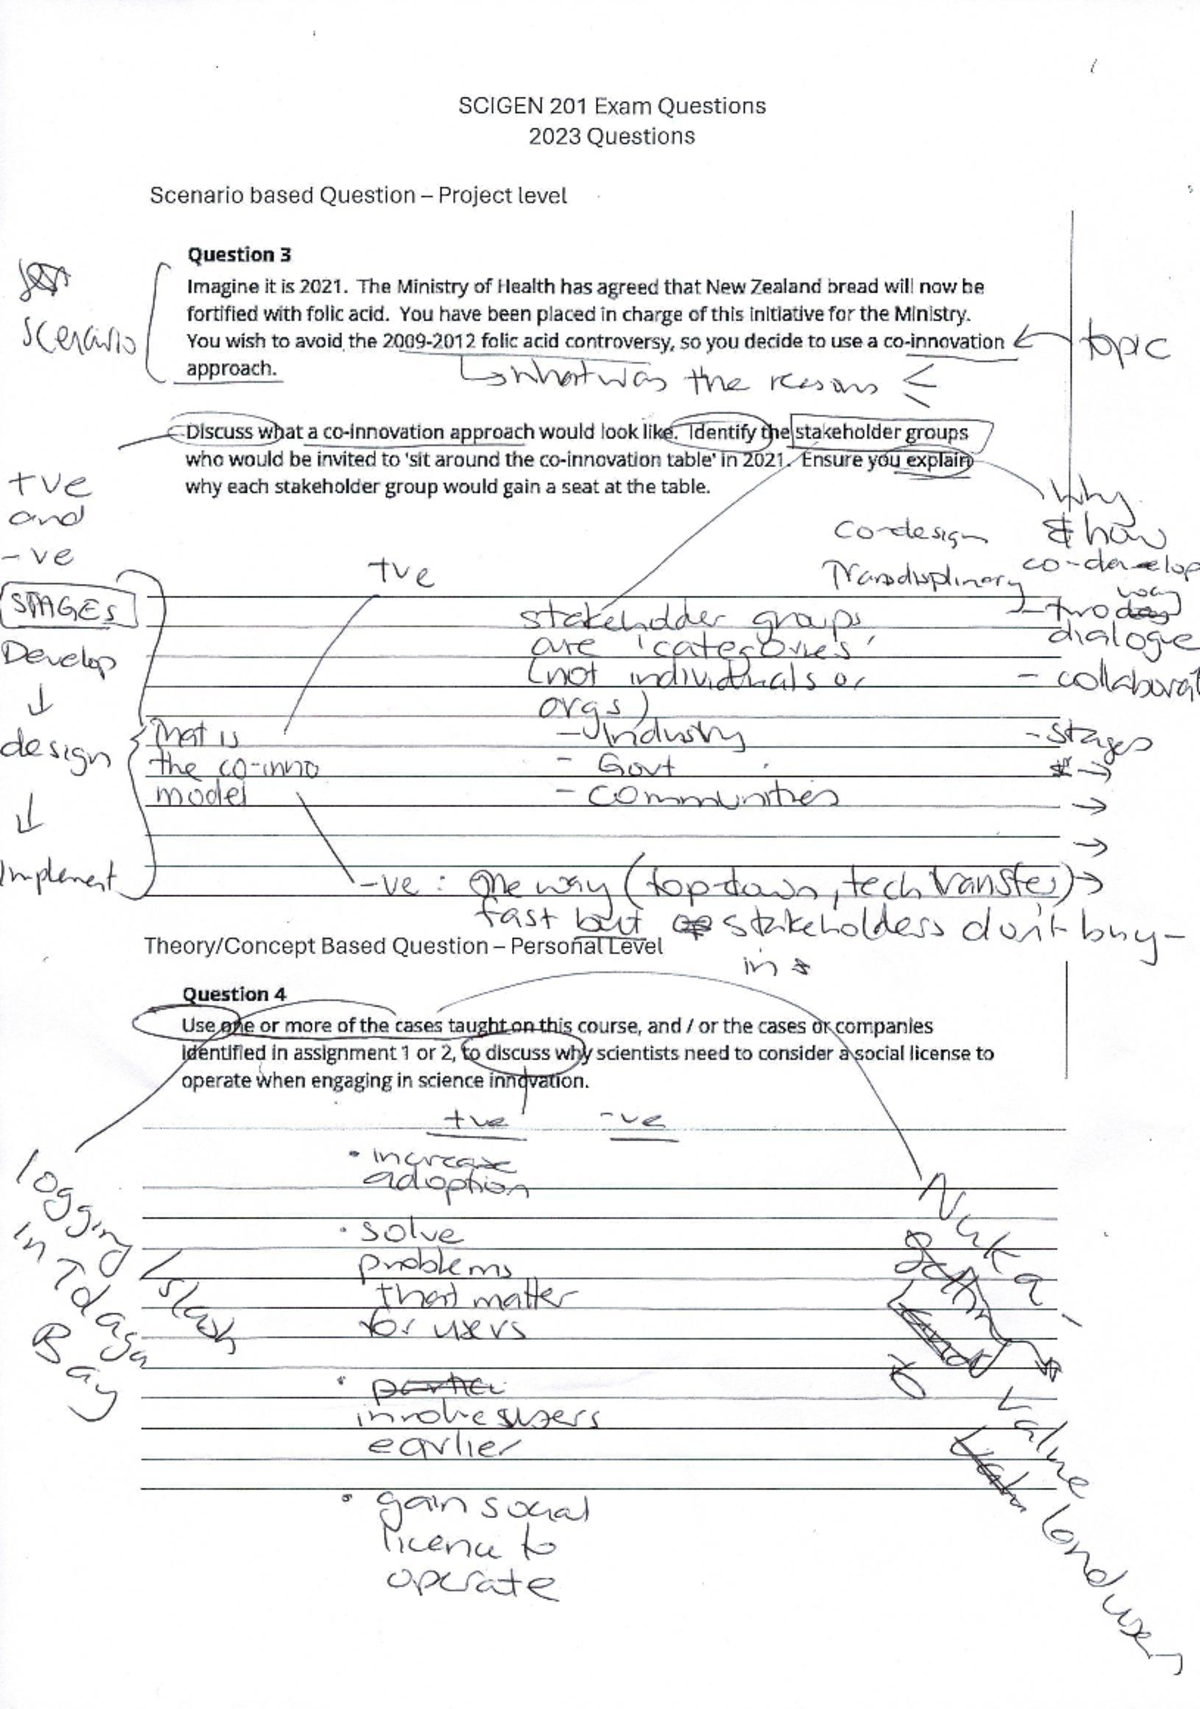 SCIGEN 201 Exam Questions
2023 Questions
Scenario based Question – Project level
Question 3
Imagine it is 2021. The Ministry of Health has agreed that New Zealand bread will now be
fortified with folic acid. You have been placed in charge of this initiative for the Ministry.
You wish to avoid the 2009-2012 folic acid controversy, so you decide to use a co-innovation
approach.
scenario
topic
what was the reasons
Discuss what a co-innovation approach would look like. Identify the stakeholder groups
who would be invited to 'sit around the co-innovation table' in 2021. Ensure you explain
why each stakeholder group would gain a seat at the table.
+ve
and
-ve
STAGES
Develop
design
Implement
+ve
That is
the co-inno
model
stakeholder groups
are 'categories'
(not individuals or
orgs)
- Industry
- Govt
- communities
co-design
Transdisplinary
why
& how
co-develop
- two way
dialogue
- collaborat
- stages
-ve : One way (top-down, tech transfer)
fast but stakeholders don't buy-
in
Theory/Concept Based Question – Personal Level
Question 4
Use one or more of the cases taught on this course, and / or the cases or companies
identified in assignment 1 or 2, to discuss why scientists need to consider a social license to
operate when engaging in science innovation.
+ve -ve
• increase
adoption
• solve
problems
that matter
for users
• involve users
earlier
• gain social
licence to
operate
logging / slash
in Tolaga
Bay
value
land use